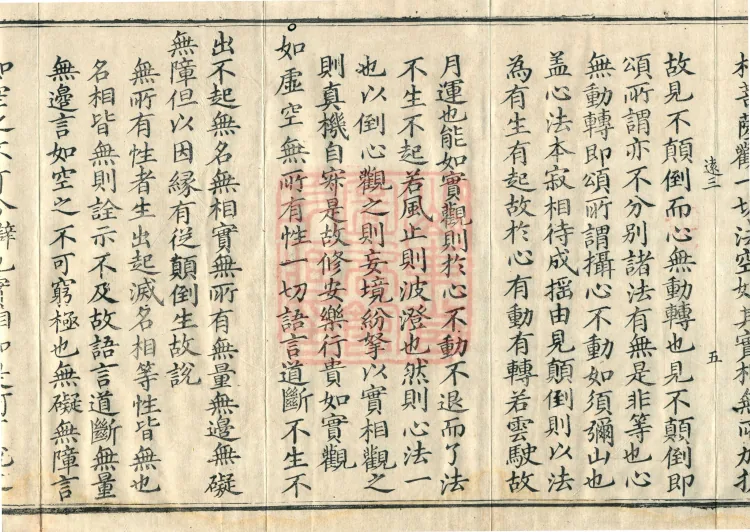 菩薩觀一切法空如其實相無所
遠三
五
故見不顛倒而心無動轉也見不顛倒即
頌所謂亦不分別諸法有無是非等也心
無動轉即頌所謂攝心不動如須彌山也
盖心法本寂相待成揺由見顛倒則以法
為有生有起故於心有動有轉若雲駛故
月運也能如實觀則於心不動不退而了法
不生不起若風止則波澄也然則心法一
也以倒心觀之則妄境紛拏以實相觀之
則真機自寂是故修安樂行貴如實觀
如虛空無所有性一切語言道斷不生不
出不起無名無相實無所有無量無邊無礙
無障但以因緣有從顛倒生故說
無所有性者生出起滅名相等性皆無也
名相皆無則詮示不及故語言道斷無量
無邊言如空之不可窮極也無礙無障言
如空之不可